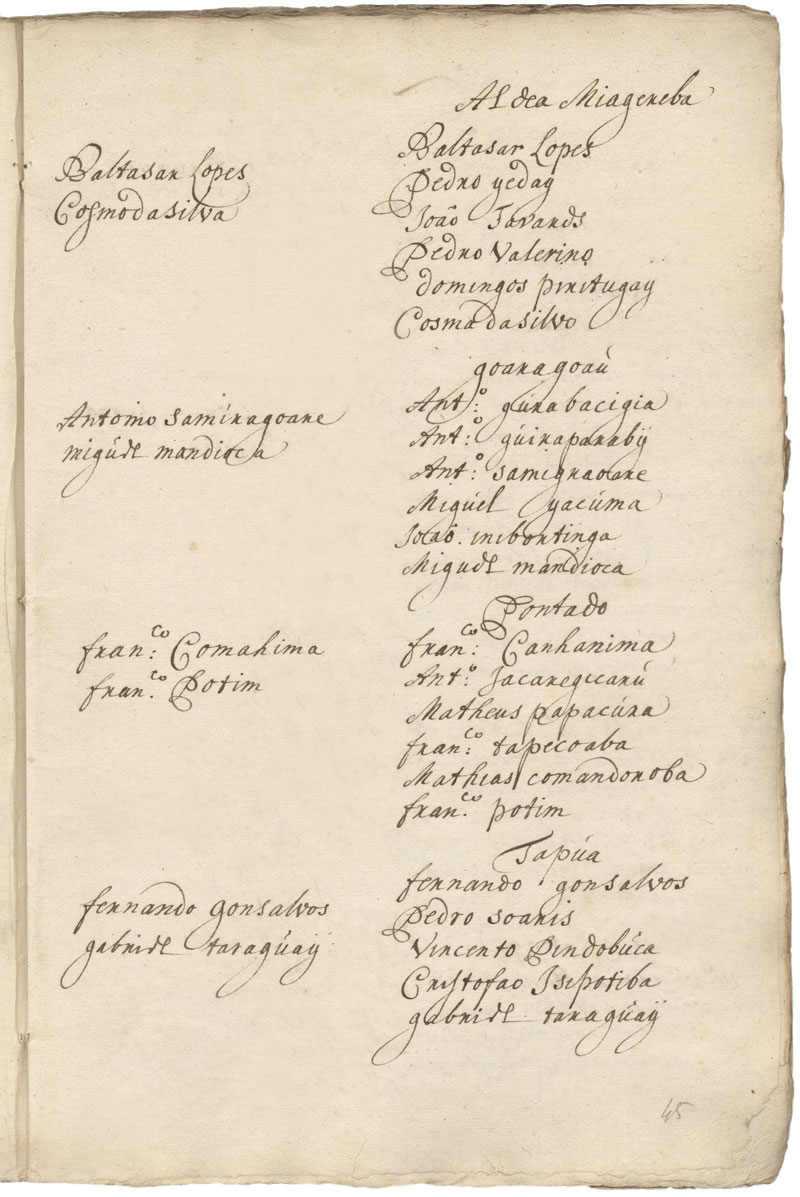 Aldea Miagereba
Baltasar Lopes
Cosmo da silva
Baltasar Lopes
Pedro yeday
João Tavares
Pedro Valerino
domingos piritugay
Cosma da silvo
goaragoaú
Antoimo samíragoare
migúel mandioca
Antº: gúrabacigia
Antº: gúiraparabÿ
Antº: samigraoare
Migúel yacúma
Joaõ. iribontinga
Miguel mandioca
Pontado
franco: Comahima
franco: Potim
franco: Canhanima
Antº:
Matheus papacúra
franco: tapecoaba
Mathias comandoroba
franco: potim
Tapúa
fernando gonsalvos
gabriel taragúaÿ
fernando gonsalvos
Pedro soaris
Vincento Pindobúca
Cristofao Isipotiba
gabriel taragúaÿ
45